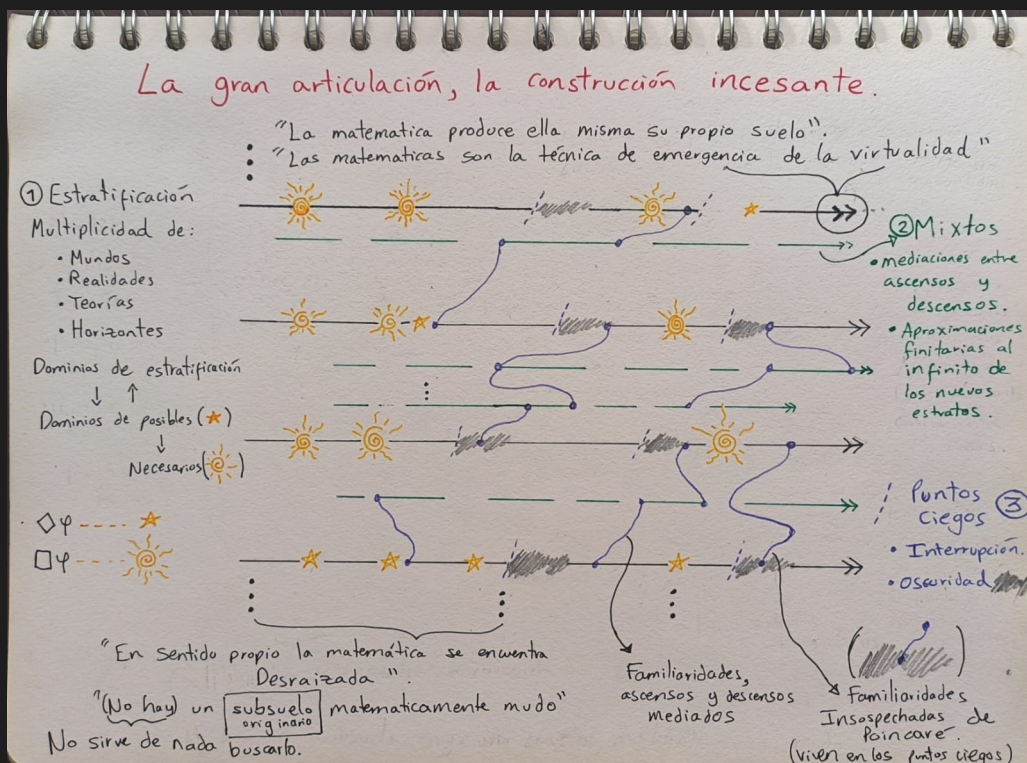 La gran articulación, la construcción incesante.
"La matematica produce ella misma su propio suelo".
"Las matematicas son la técnica de emergencia de la virtualidad"
① Estratificación
Multiplicidad de:
• Mundos
• Realidades
• Teorías
• Horizontes
Dominios de estratificación
↓ ↑
Dominios de posibles (☆)
↓
Necesarios( )
◇φ ---- ☆
□φ ----
② Mixtos
• mediaciones entre
ascensos y
descensos.
• Aproximaciones
finitarias al
infinito de
los nuevos
estratos.
Puntos ③
ciegos
• Interrupción.
• Oscuridad
"En sentido propio la matemática se encuentra
Desraizada".
"(No hay) un subsuelo matematicamente mudo"
originario
No sirve de nada buscarlo.
Familiaridades,
ascensos y descensos
mediados
Familiaridades
Insospechadas de
Poincaré.
(viven en los puntos ciegos)